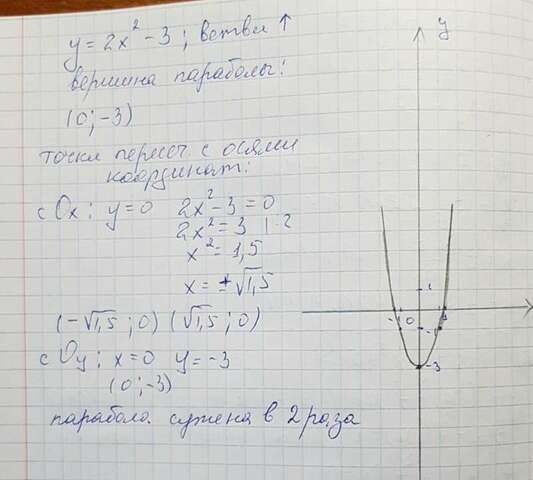 y = 2x² - 3 ; ветви ↑
вершина параболы:
(0; -3)
точки пересеч. с осями
координат:
с Ox: y = 0 2x² - 3 = 0
2x² = 3 | : 2
x² = 1,5
x = ±√1,5
(-√1,5 ; 0) (√1,5 ; 0)
с Oy: x = 0 y = -3
(0; -3)
парабола сужена в 2 раза
y
1
-1 0 1
-1
-3